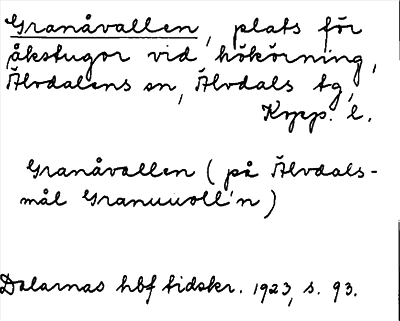 Granåvallen, plats för
åkstugor vid hökörning,
Älvdalens sn, Älvdals tg,
Kopp. l.
Granåvallen (på Älvdals-
mål Granuuoll'n)
Dalarnas hbf tidskr. 1923, s. 93.